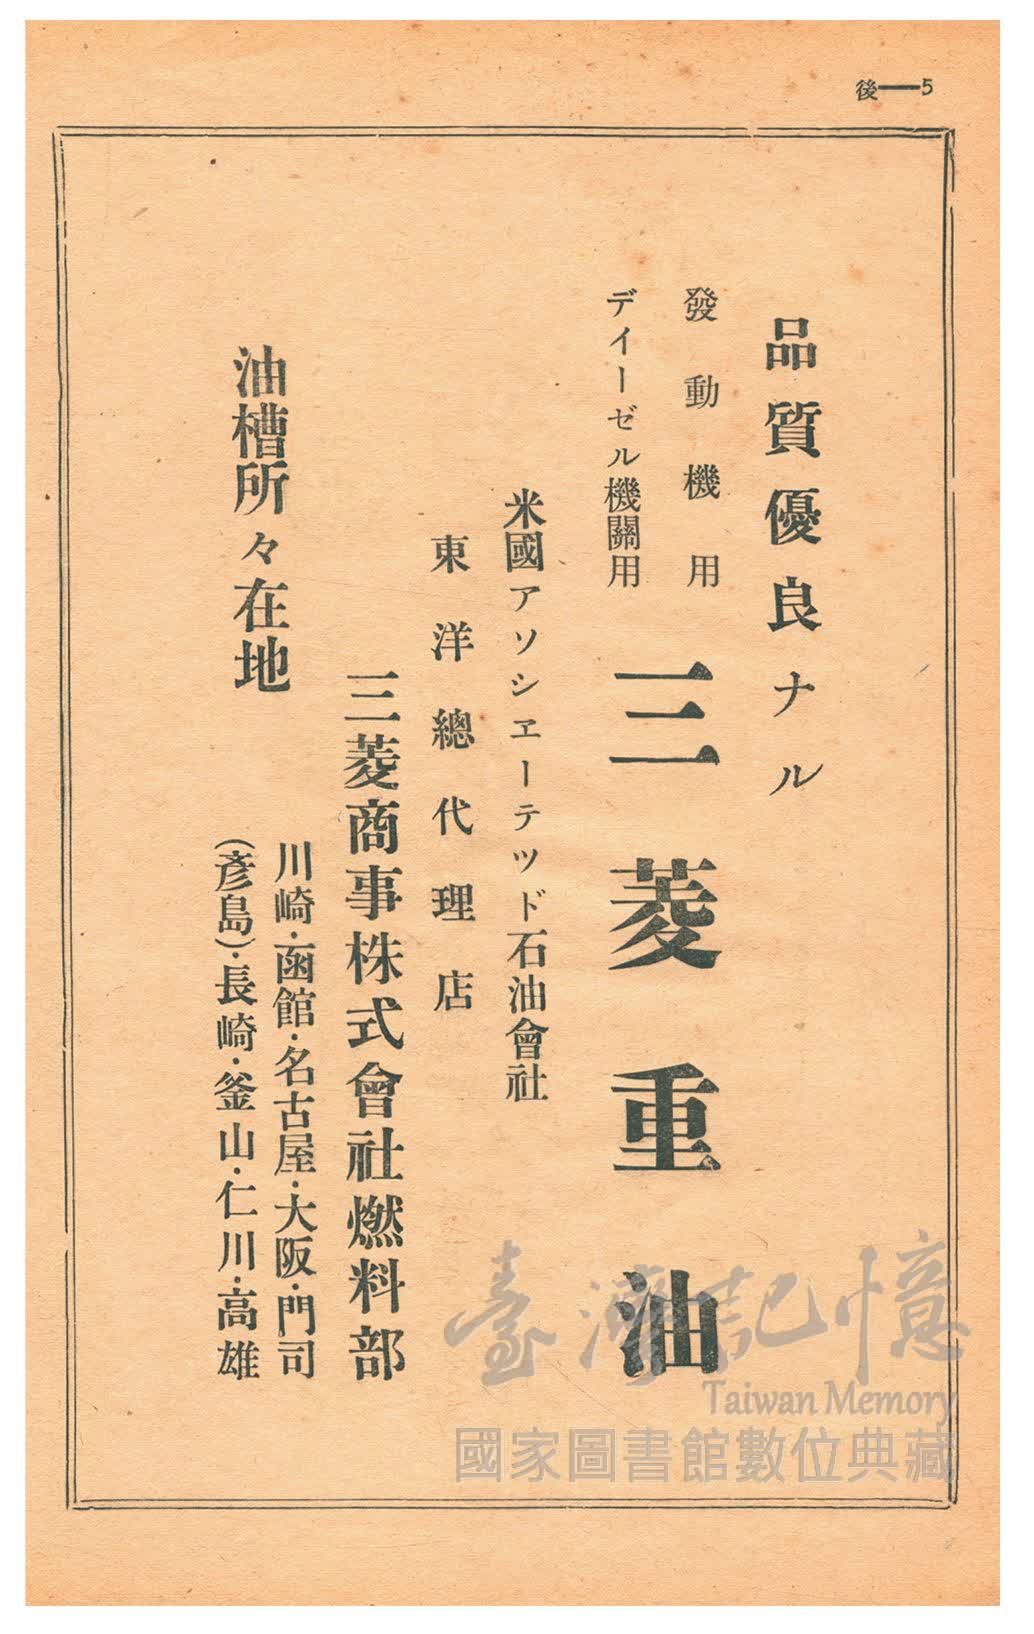 後━5
品質優良ナル
發動機用
デイーゼル機關用
三菱重油
米國アソシエーテツド石油會社
東洋總代理店
三菱商事株式會社燃料部
油槽所々在地
川崎・函館・名古屋・大阪・門司
(彥島)・長崎・釜山・仁川・高雄
臺灣記憶
Taiwan Memory
國家圖書館數位典藏